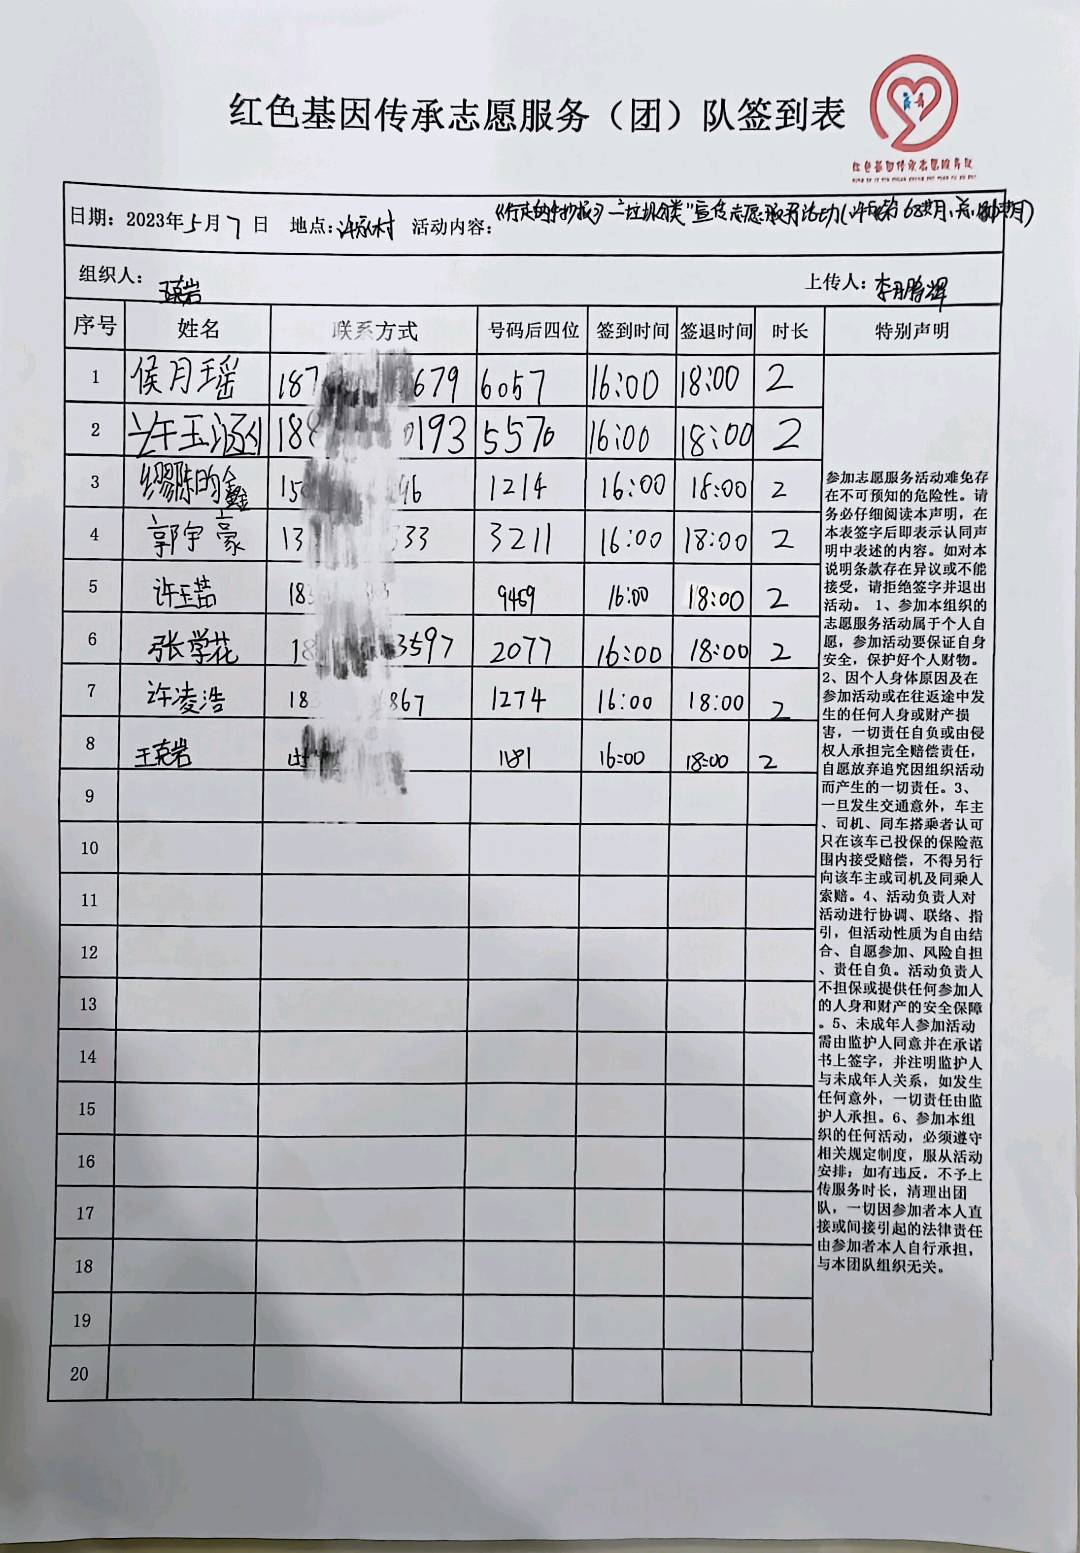 红色基因传承志愿服务（团）队签到表
红色基因传承志愿服务队
日期：2023年5月7日 地点： 村 活动内容： 垃圾分类"宣传志愿服务活动
组织人：王克岩 上传人：李丹鹏辉
序号 姓名 联系方式 号码后四位 签到时间 签退时间 时长 特别声明
1 侯月瑶 187 679 6057 16:00 18:00 2
2 许玉涵 18 0193 5570 16:00 18:00 2
3 缪陈昀鑫 15 46 1214 16:00 18:00 2
4 郭宇豪 13 333 3211 16:00 18:00 2
5 许玉茹 183 9469 16:00 18:00 2
6 张学花 18 3597 2077 16:00 18:00 2
7 许凌浩 183 867 1274 16:00 18:00 2
8 王克岩 1181 16:00 18:00 2
9
10
11
12
13
14
15
16
17
18
19
20
参加志愿服务活动难免存
在不可预知的危险性。请
务必仔细阅读本声明，在
本表签字后即表示认同声
明中表述的内容。如对本
说明条款存在异议或不能
接受，请拒绝签字并退出
活动。 1、参加本组织的
志愿服务活动属于个人自
愿，参加活动要保证自身
安全，保护好个人财物。
2、因个人身体原因及在
参加活动或在往返途中发
生的任何人身或财产损
害，一切责任自负或由侵
权人承担完全赔偿责任，
自愿放弃追究因组织活动
而产生的一切责任。3、
一旦发生交通意外，车主
、司机、同车搭乘者认可
只在该车已投保的保险范
围内接受赔偿，不得另行
向该车主或司机及同乘人
索赔。4、活动负责人对
活动进行协调、联络、指
引，但活动性质为自由结
合、自愿参加、风险自担
、责任自负。活动负责人
不担保或提供任何参加人
的人身和财产的安全保障
。5、未成年人参加活动
需由监护人同意并在承诺
书上签字，并注明监护人
与未成年人关系，如发生
任何意外，一切责任由监
护人承担。6、参加本组
织的任何活动，必须遵守
相关规定制度，服从活动
安排；如有违反，不予上
传服务时长，清理出团
队，一切因参加者本人直
接或间接引起的法律责任
由参加者本人自行承担，
与本团队组织无关。